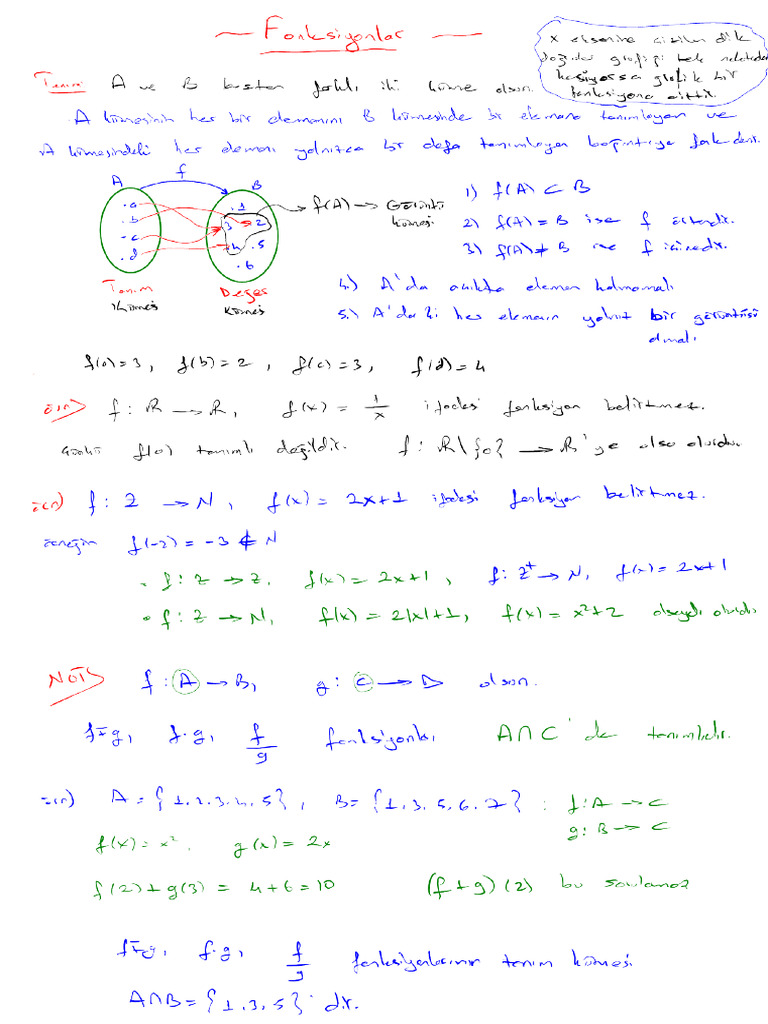 Fonksiyonlar
x eksenine çizilen dik
doğrular grafiği tek noktada
kesiyorsa grafik bir
fonksiyona aittir.
Tanım: A ve B boştan farklı iki küme olsun.
A kümesinin her bir elemanını B kümesinde bir elemana tanımlayan ve
A kümesindeki her elemanı yalnızca bir defa tanımlayan bağıntıya fonk. denir.
A f B
.a .b .c .d
.1 3 .2 4 .5 .6
f(A) → Görüntü
kümesi
Tanım
Kümesi
Değer
Kümesi
1) f(A) ⊂ B
2) f(A) = B ise f örtendir.
3) f(A) ≠ B ise f içinedir.
4.) A'da açıkta eleman kalmamalı
5.) A'daki her elemanın yalnız bir görüntüsü
olmalı
f(a)=3, f(b)=2, f(c)=3, f(d)=4
örn) f: R → R, f(x) = 1/x ifadesi fonksiyon belirtmez.
Çünkü f(0) tanımlı değildir. f: R\{0} → R'ye olsa olurdu
örn) f: Z → N, f(x) = 2x+1 ifadesi fonksiyon belirtmez.
örneğin f(-2) = -3 ∉ N
. f: Z → Z, f(x) = 2x+1, f: Z⁺ → N, f(x) = 2x+1
• f: Z → N, f(x) = 2|x|+1, f(x) = x²+2 olsaydı olurdu
NOT: f: A → B, g: C → D olsun.
f±g, f.g, f/g fonksiyonları A∩C 'de tanımlıdır.
örn) A = {1,2,3,4,5}, B = {1,3,5,6,7} : f: A → C
g: B → C
f(x) = x², g(x) = 2x
f(2)+g(3) = 4+6 = 10 (f+g)(2) bu sorulamaz
f±g, f.g, f/g fonksiyonlarının tanım kümesi
A∩B = {1,3,5} 'dir.